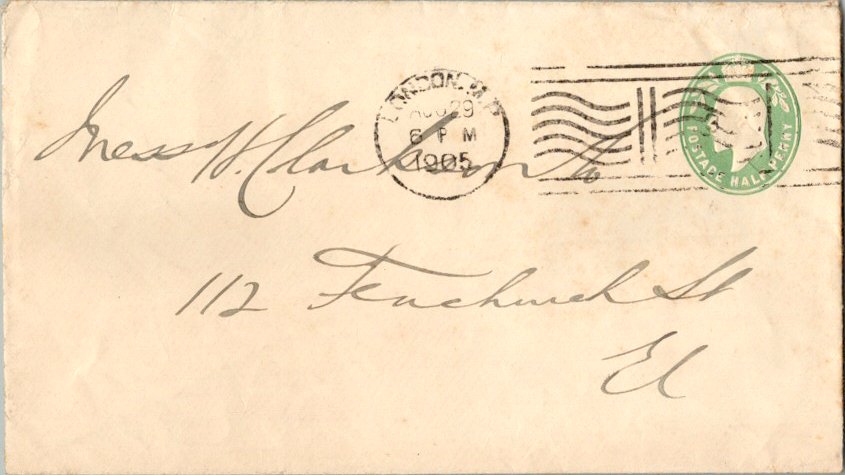 LONDON. M.P
AUG 29
6 P M
1905
POSTAGE HALF PENNY
Mess W. Clarkson & Co
112 Fenchurch St
EC